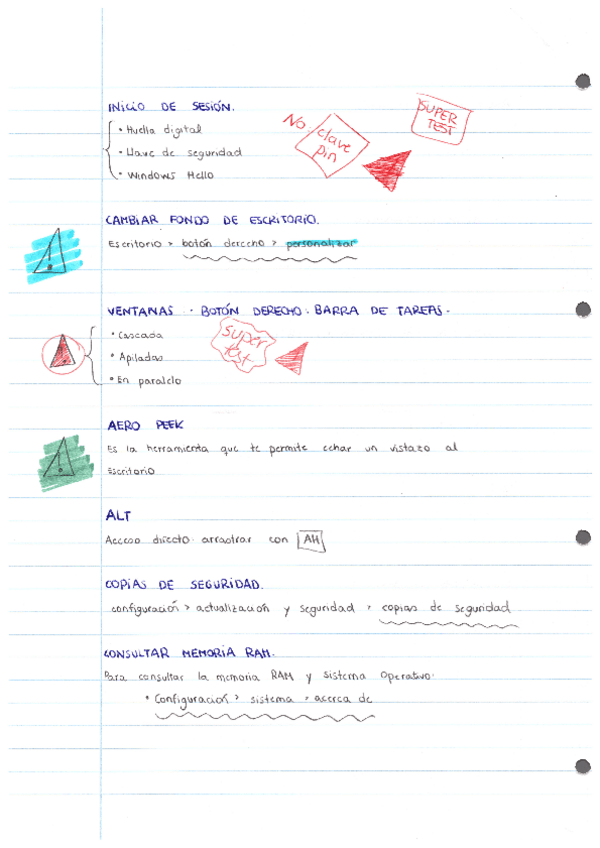 INICIO DE SESIÓN.
• Huella digital
• Llave de seguridad
• Windows Hello
No: clave
pin
SUPER
TEST
CAMBIAR FONDO DE ESCRITORIO.
Escritorio > botón derecho > personalizar
VENTANAS · BOTÓN DERECHO · BARRA DE TAREAS.
• Cascada
• Apiladas
• En paralelo
super
test
AERO PEEK
Es la herramienta que te permite echar un vistazo al
Escritorio
ALT
Acceso directo arrastrar con Alt
COPIAS DE SEGURIDAD.
configuración > actualización y seguridad > copias de seguridad
CONSULTAR MEMORIA RAM.
Para consultar la memoria RAM y sistema Operativo.
• Configuración > sistema > acerca de